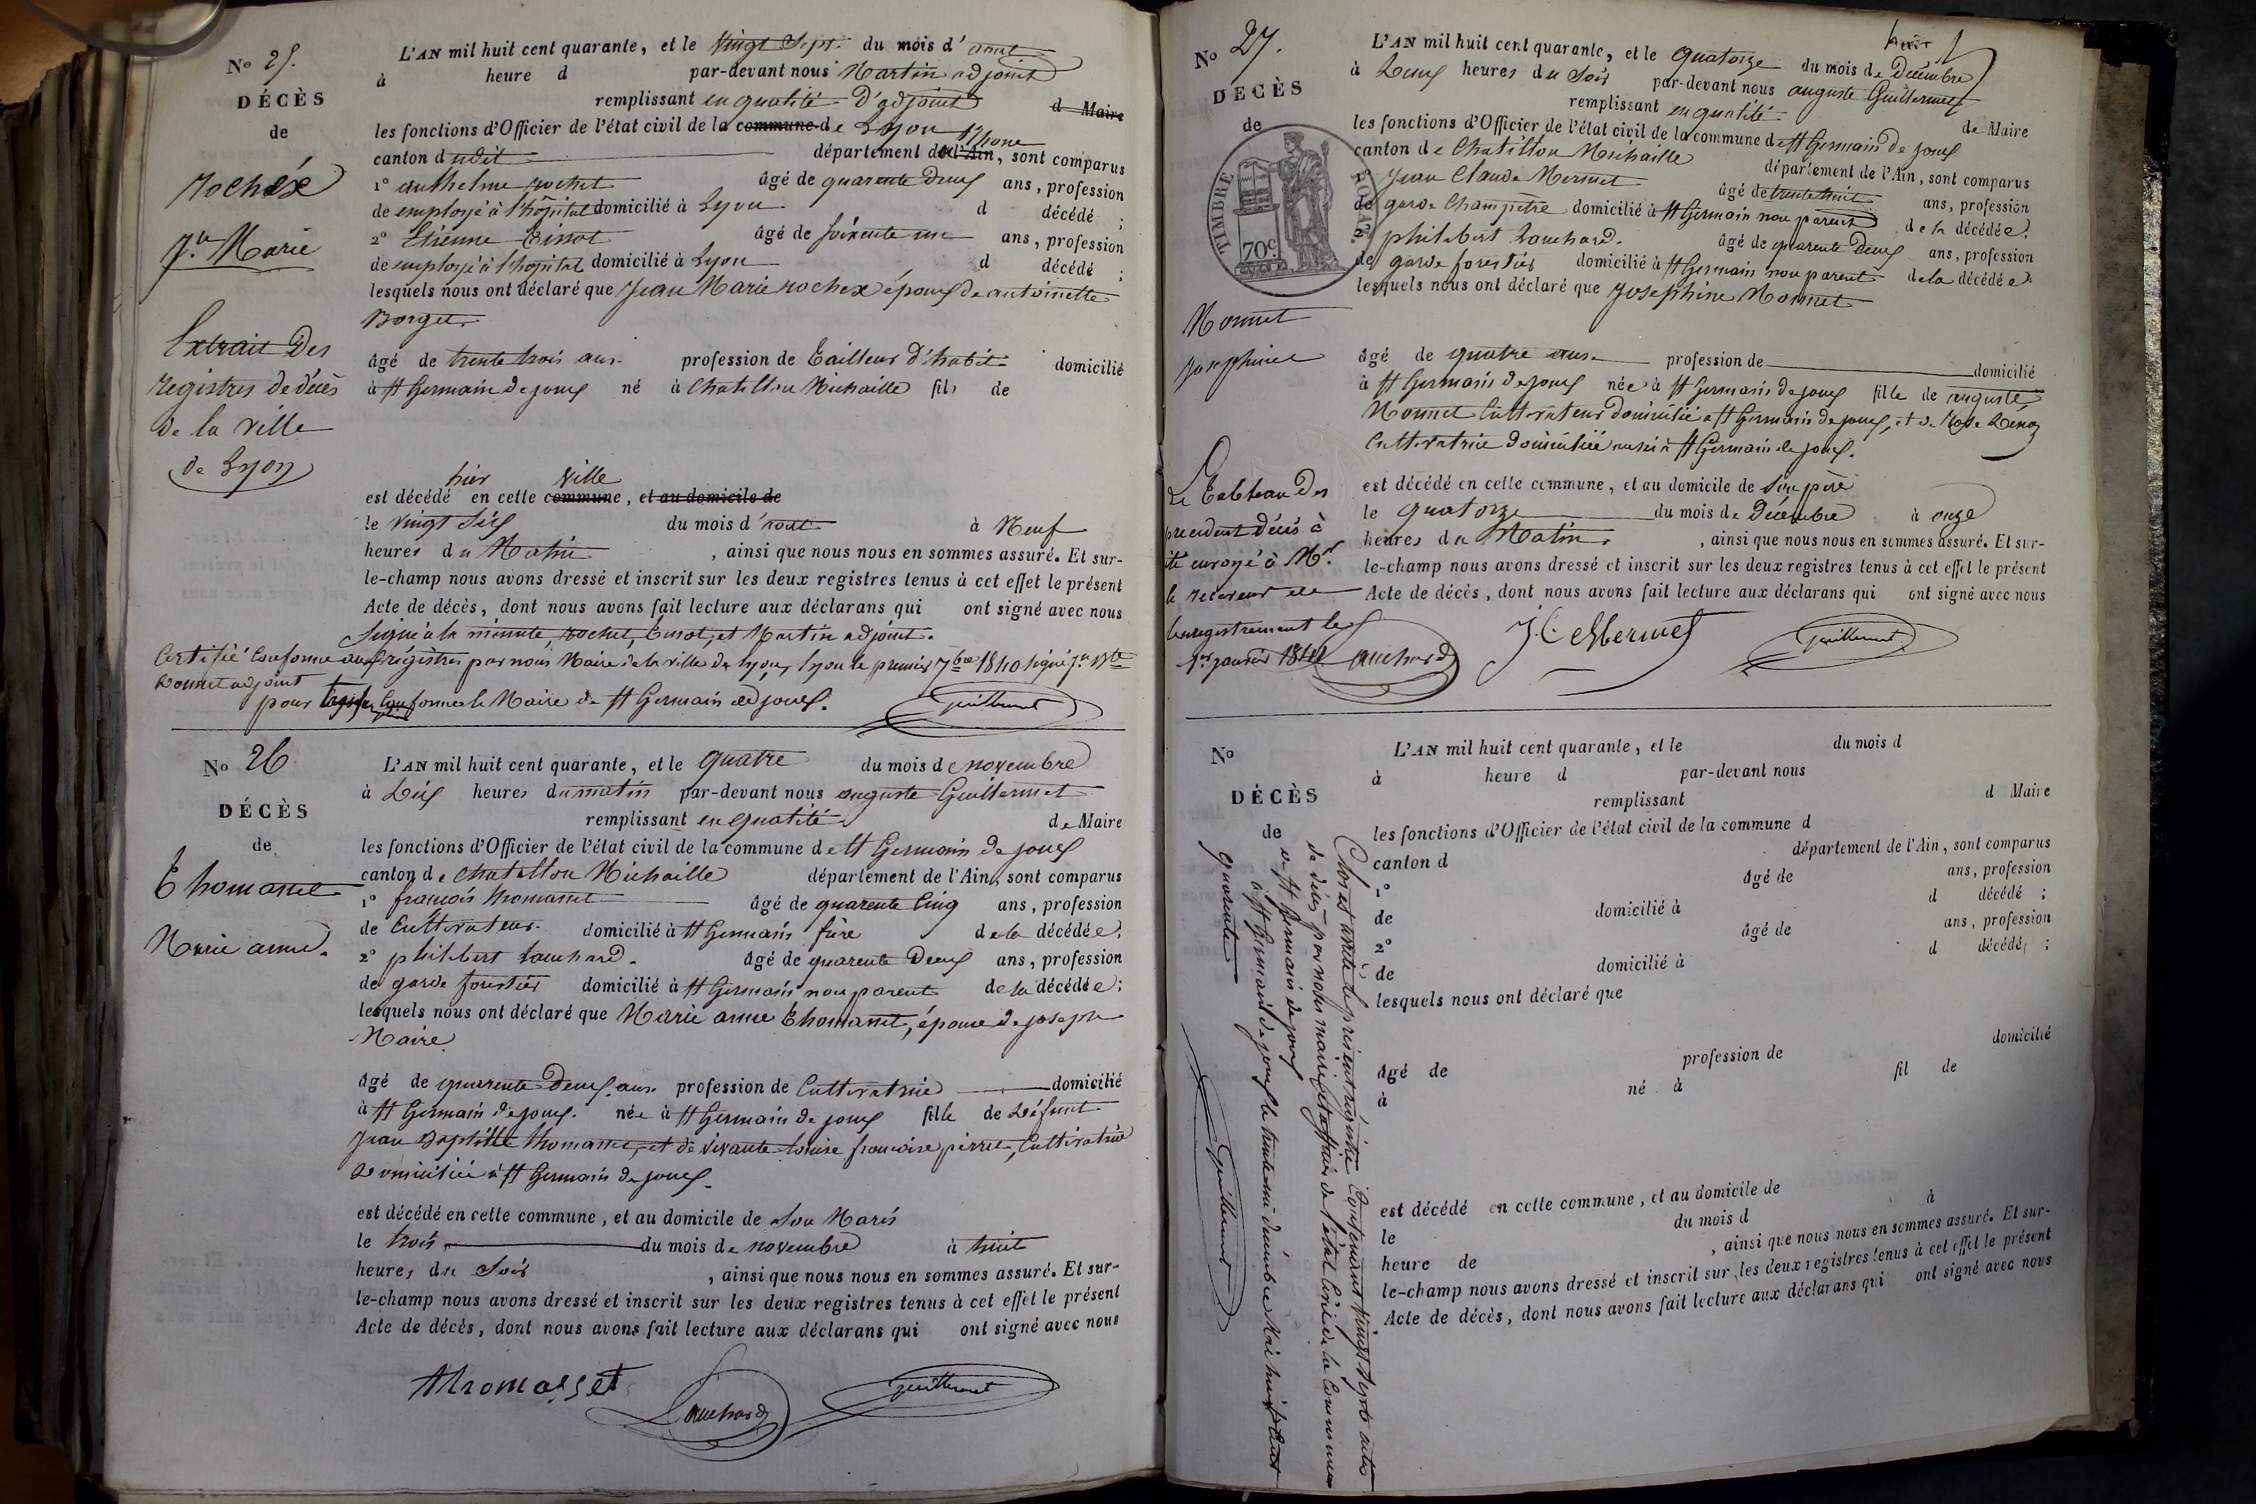 No 25.
DÉCÈS
de
Rochex
Jn. Marie
Extrait Des
registres de décès
de la ville
de Lyon
L'AN mil huit cent quarante, et le vingt Sept du mois d'aout
à heure d par-devant nous Martin adjoint
remplissant en qualité D'adjoint d Maire
les fonctions d'Officier de l'état civil de la commune de Lyon
canton dudit département du Rhone l'Ain, sont comparus
1º anthelme rochet âgé de quarente Deux ans, profession
de employé à l'hôpital domicilié à Lyon d décédé ;
2º Etienne Tissot âgé de soixente un ans, profession
de employé à l'hopital domicilié à Lyon d décédé ;
lesquels nous ont déclaré que Jean Marie rochex époux de antoinette
Borget.
âgé de trente trois ans. profession de Tailleur d'habit domicilié
à St Germain de joux né à Chatillon Michaille fils de
hier ville
est décédé en cette commune, et au domicile de
le vingt Six du mois d'aout à Neuf
heures du Matin, ainsi que nous nous en sommes assuré. Et sur-
le-champ nous avons dressé et inscrit sur les deux registres tenus à cet effet le présent
Acte de décès, dont nous avons fait lecture aux déclarans qui ont signé avec nous
Signé à la minute, rochet, Tissot, et Martin adjoint.
Certifié Conforme aux régistres par nous Maire de la ville de Lyon, Lyon le premier 7bre 1840 signé Jn Bte
adjoint
pour Conforme le Maire de St Germain de joux.
Guillermet
No 26
DÉCÈS
de
Thomasset
Marie anne.
L'AN mil huit cent quarante, et le quatre du mois de novembre
à Dix heures du matin par-devant nous auguste Guillermet
remplissant en qualité de Maire
les fonctions d'Officier de l'état civil de la commune de St Germain de joux
canton de Chatillon Michaille département de l'Ain, sont comparus
1º françois thomasset âgé de quarente Cinq ans, profession
de Cultivateur. domicilié à St Germain frère de la décédée;
2º philibert Lauchard. âgé de quarente Deux ans, profession
de garde forestier domicilié à St Germain non parent de la décédée;
lesquels nous ont déclaré que Marie anne Thomasset, épouse de joseph
Maire
âgé de quarente Deux ans profession de Cultivatrice domicilié
à St Germain de joux. née à St Germain de joux fille de Défunt
Jean Baptiste thomasset, et de vivante Louise françoise pirret, Cultivatrice
Domiciliée à St Germain de joux.
est décédé en cette commune, et au domicile de Son Maris
le trois du mois de novembre à huit
heures du Soir, ainsi que nous nous en sommes assuré. Et sur-
le-champ nous avons dressé et inscrit sur les deux registres tenus à cet effet le présent
Acte de décès, dont nous avons fait lecture aux déclarans qui ont signé avec nous
Thomasset
Lauchard
Guillermet
No 27.
DÉCÈS
de
TIMBRE ROYAL
70c
Monnet
Josephine
Le Tableau Des
precedent décés à
été envoyé à Mr.
le receveur de
l'enregistrement le
1er janvier 1841
L'AN mil huit cent quarante, et le quatorze du mois de Décembre
à Deux heures du Soir par-devant nous auguste Guillermet
remplissant en qualité de Maire
les fonctions d'Officier de l'état civil de la commune de St Germain de joux
canton de Chatillon Michaille département de l'Ain, sont comparus
Jean Claude Mermet âgé de trente huit ans, profession
de garde Champêtre domicilié à St Germain non parent de la décédée;
2º philibert Lauchard. âgé de quarente Deux ans, profession
de garde forestier domicilié à St Germain non parent de la décédée
lesquels nous ont déclaré que Josephine Monnet
âgé de quatre ans profession de domicilié
à St Germain de joux née à St Germain de joux fille de auguste
Monnet Cultivateur Domicilié à St Germain de joux, et de Rose
Cultivatrice domiciliée aussi à St Germain de joux.
est décédé en cette commune, et au domicile de Son père
le quatorze du mois de Décembre à onze
heures du Matin, ainsi que nous nous en sommes assuré. Et sur-
le-champ nous avons dressé et inscrit sur les deux registres tenus à cet effet le présent
Acte de décès, dont nous avons fait lecture aux déclarans qui ont signé avec nous
Lauchard
J. C. Mermet
Guillermet
No
DÉCÈS
de
L'AN mil huit cent quarante, et le du mois d
à heure d par-devant nous
remplissant d Maire
les fonctions d'Officier de l'état civil de la commune d
canton d département de l'Ain, sont comparus
1º âgé de ans, profession
de domicilié à d décédé ;
2º âgé de ans, profession
de domicilié à d décédé ;
lesquels nous ont déclaré que
âgé de profession de domicilié
à né à fil de
est décédé en cette commune, et au domicile de
le du mois d à
heure de, ainsi que nous nous en sommes assuré. Et sur-
le-champ nous avons dressé et inscrit sur les deux registres tenus à cet effet le présent
Acte de décès, dont nous avons fait lecture aux déclarans qui ont signé avec nous
Clos et arrêté le présent régistre Contenant vingt Sept actes
de décès par nous maire et officier de l'état Civil de la Commune
de St Germain de joux
à St Germain de joux le trente un décembre Mil huit Cent
quarente
Guillermet